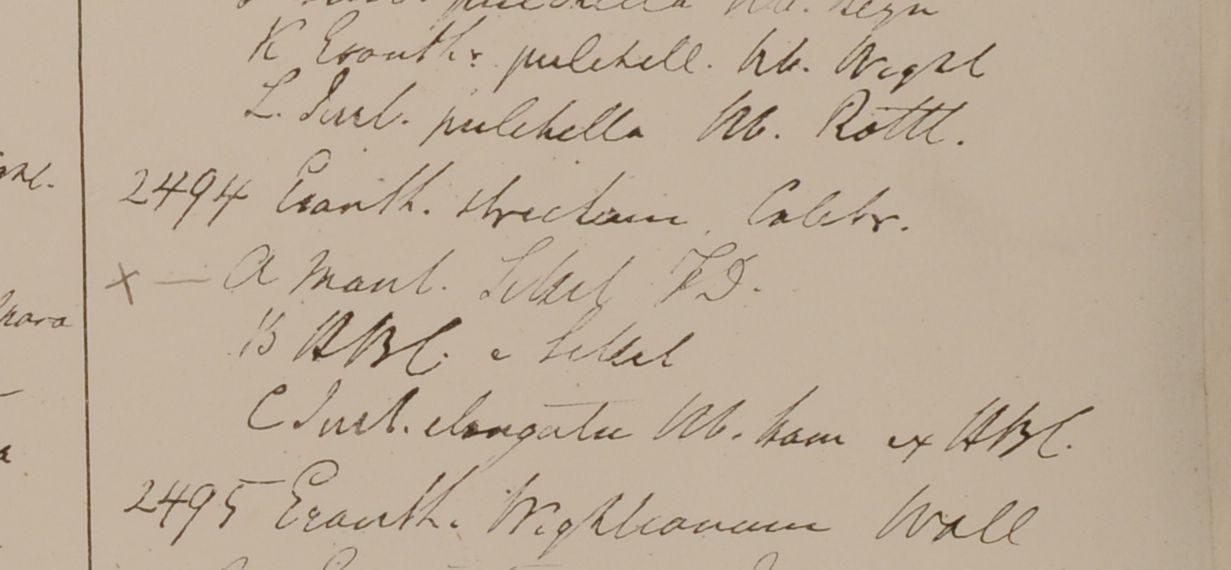 pulchella Hb. Heyn
K Eranth. pulchell. Hb. Wight
L. Just. pulchella Hb. Rottl.
2494 Eranth. strictum Colebr.
x — A Mont. Sillet FD.
B HBC. e Sillet
C Just. elongata Hb. Ham ex HBC.
2495 Eranth. Wightianum Wall